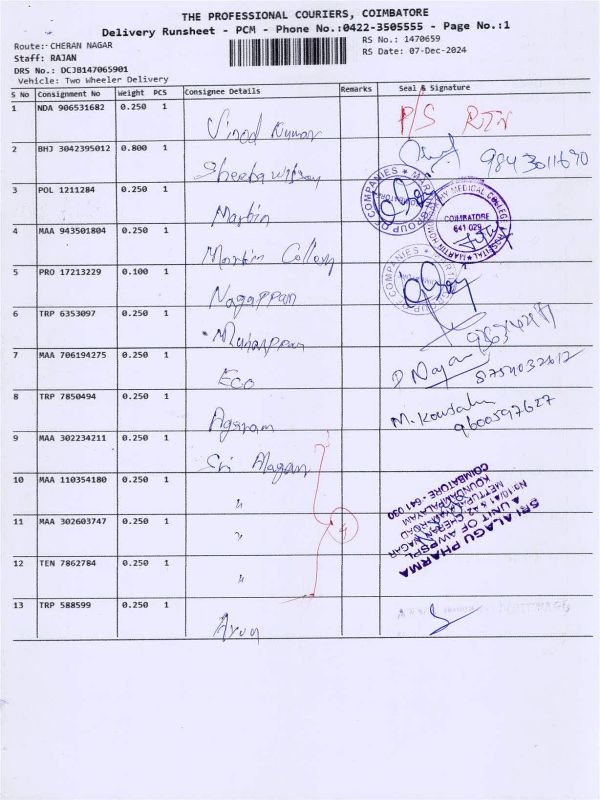 THE PROFESSIONAL COURIERS, COIMBATORE
Delivery Runsheet - PCM - Phone No.:0422-3505555 - Page No.:1
Route: CHERAN NAGAR
RS No.: 1470659
Staff: RAJAN
RS Date: 07-Dec-2024
DRS No.: DCJB147065901
Vehicle: Two Wheeler Delivery
S No Consignment No Weight PCS Consignee Details Remarks Seal & Signature
1 NDA 906531682 0.250 1 Vinod Kumar P/S RTN
2 BHJ 3042395012 0.800 1 9843011690
3 POL 1211284 0.250 1 Martin
4 MAA 943501804 0.250 1 Martin College
COIMBATORE
641 029
5 PRO 17213229 0.100 1 Nagappan
6 TRP 6353097 0.250 1
7 MAA 706194275 0.250 1 Eco D Nayan 8754032612
8 TRP 7850494 0.250 1 Agaram M. Kousalya 9600597627
9 MAA 302234211 0.250 1 Sri Alagan
10 MAA 110354180 0.250 1 "
11 MAA 302603747 0.250 1 " 4
12 TEN 7862784 0.250 1 "
SRI ALAGU PHARMA
A UNIT OF AWPSPL
No:10/A1 & A2, CHERAN NAGAR
METTUPALAYAM ROAD
KOUNDAMPALAYAM
COIMBATORE - 641 030
13 TRP 588599 0.250 1 Arun